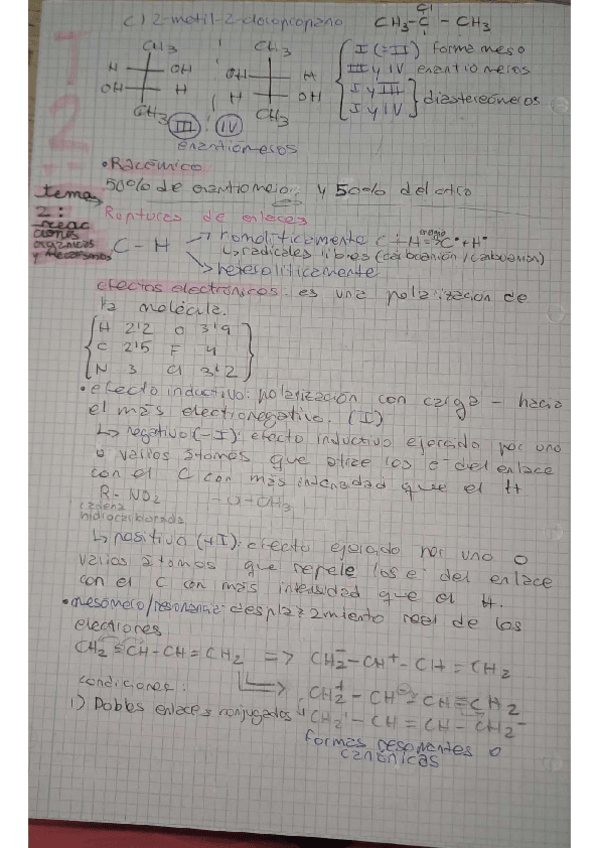 c) 2-metil-2-cloropropano
Cl
CH3-C-CH3
CH3 CH3
H OH OH H
OH H H OH
CH3 CH3
III IV
enantiomeros
I (=II) forma meso
III y IV enantiomeros
I y III
I y IV
diastereómeros
• Racémico
50% de enantiomero y 50% del otro
tema 2: reacciones orgánicas y
Rupturas de enlaces
C-H
→ homolíticamente C+H → C•+H•
↳ radicales libres (carboanión/
→ heterolíticamente
efectos electrónicos: es una polarización de
la molécula.
H 2'2 O 3'9
C 2'5 F 4
N 3 Cl 3'2
• efecto inductivo: polarización con carga - hacia
el más electronegativo. (I)
↳ negativo (-I): efecto inductivo ejercido por uno
o varios átomos que atrae los e- del enlace
con el C con más intensidad que el H
R-NO2 -O-CH3
cadena
hidrocarbonada
↳ positivo (+I): efecto ejercido por uno o
varios átomos que repele los e- del enlace
con el C con más intensidad que el H.
• mesómero/resonancia: desplazamiento real de los
electrones
CH2=CH-CH=CH2 => CH2--CH+-CH=CH2
condiciones:
CH2+-CH-=CH=CH2
1) Dobles enlaces conjugados CH2+-CH=CH-CH2-
formas resonantes o
canónicas